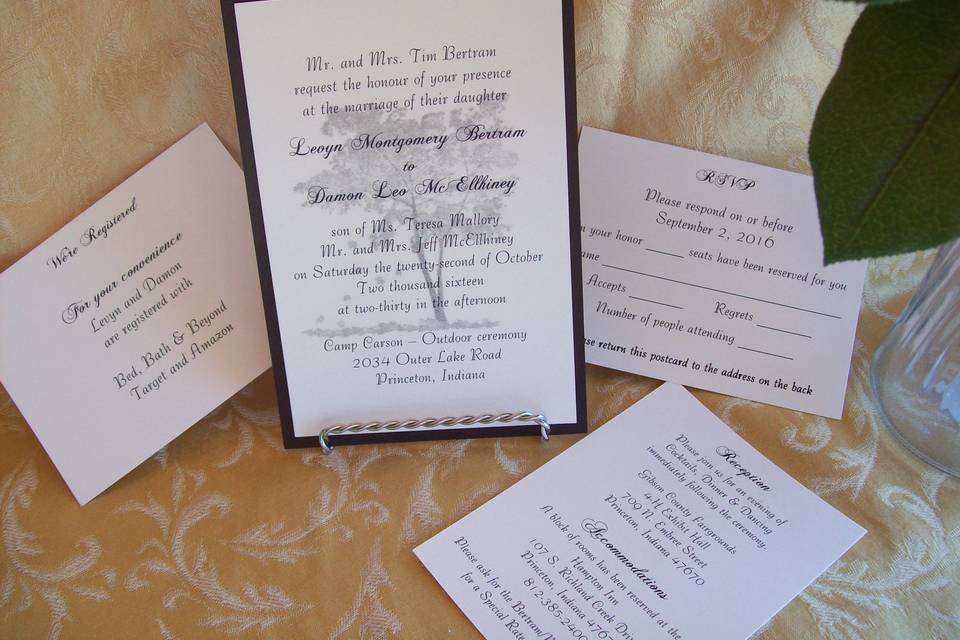 We're Registered
For your convenience
Levyn and Damon
are registered with
Bed, Bath & Beyond
Target and Amazon
Mr. and Mrs. Tim Bertram
request the honour of your presence
at the marriage of their daughter
Levyn Montgomery Bertram
to
Damon Leo McEllhiney
son of Ms. Teresa Mallory
Mr. and Mrs. Jeff McEllhiney
on Saturday the twenty-second of October
Two thousand sixteen
at two-thirty in the afternoon
Camp Carson – Outdoor ceremony
2034 Outer Lake Road
Princeton, Indiana
RSVP
Please respond on or before
September 2, 2016
your honor ______ seats have been reserved for you
ame
Accepts ______ Regrets ______
Number of people attending ______
se return this postcard to the address on the back
Reception
Please join us for an evening of
Cocktails, Dinner & Dancing
immediately following the ceremony.
Gibson County Fairgrounds
4 H Exhibit Hall
709 N. Embree Street
Princeton, Indiana 47670
Accommodations
A block of rooms has been reserved at the
Hampton Inn
107 S. Richland Creek Driv
Princeton, Indiana 4767
812-385-2400
Please ask for the Bertram/M
for a Special Rate